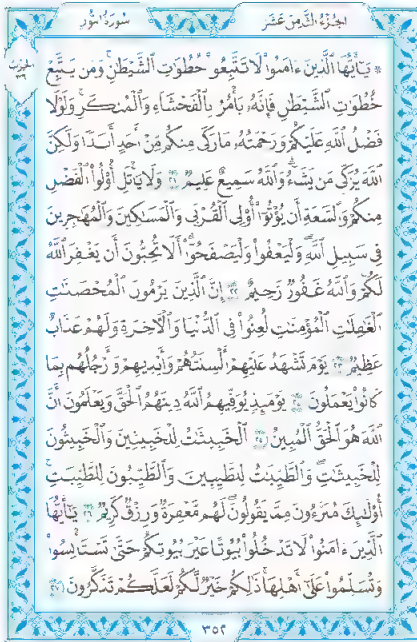 الجزء الثامن عشر
سورة النور
الحزب ٣٦
يَٰٓأَيُّهَا ٱلَّذِينَ ءَامَنُوا۟ لَا تَتَّبِعُوا۟ خُطُوَٰتِ ٱلشَّيْطَٰنِ وَمَن يَتَّبِعْ
خُطُوَٰتِ ٱلشَّيْطَٰنِ فَإِنَّهُۥ يَأْمُرُ بِٱلْفَحْشَآءِ وَٱلْمُنكَرِ وَلَوْلَا
فَضْلُ ٱللَّهِ عَلَيْكُمْ وَرَحْمَتُهُۥ مَا زَكَىٰ مِنكُم مِّنْ أَحَدٍ أَبَدًا وَلَٰكِنَّ
ٱللَّهَ يُزَكِّى مَن يَشَآءُ وَٱللَّهُ سَمِيعٌ عَلِيمٌ ٢١ وَلَا يَأْتَلِ أُو۟لُوا۟ ٱلْفَضْلِ
مِنكُمْ وَٱلسَّعَةِ أَن يُؤْتُوٓا۟ أُو۟لِى ٱلْقُرْبَىٰ وَٱلْمَسَٰكِينَ وَٱلْمُهَٰجِرِينَ
فِى سَبِيلِ ٱللَّهِ وَلْيَعْفُوا۟ وَلْيَصْفَحُوٓا۟ أَلَا تُحِبُّونَ أَن يَغْفِرَ ٱللَّهُ
لَكُمْ وَٱللَّهُ غَفُورٌ رَّحِيمٌ ٢٢ إِنَّ ٱلَّذِينَ يَرْمُونَ ٱلْمُحْصَنَٰتِ
ٱلْغَٰفِلَٰتِ ٱلْمُؤْمِنَٰتِ لُعِنُوا۟ فِى ٱلدُّنْيَا وَٱلْءَاخِرَةِ وَلَهُمْ عَذَابٌ
عَظِيمٌ ٢٣ يَوْمَ تَشْهَدُ عَلَيْهِمْ أَلْسِنَتُهُمْ وَأَيْدِيهِمْ وَأَرْجُلُهُم بِمَا
كَانُوا۟ يَعْمَلُونَ ٢٤ يَوْمَئِذٍ يُوَفِّيهِمُ ٱللَّهُ دِينَهُمُ ٱلْحَقَّ وَيَعْلَمُونَ أَنَّ
ٱللَّهَ هُوَ ٱلْحَقُّ ٱلْمُبِينُ ٢٥ ٱلْخَبِيثَٰتُ لِلْخَبِيثِينَ وَٱلْخَبِيثُونَ
لِلْخَبِيثَٰتِ وَٱلطَّيِّبَٰتُ لِلطَّيِّبِينَ وَٱلطَّيِّبُونَ لِلطَّيِّبَٰتِ
أُو۟لَٰٓئِكَ مُبَرَّءُونَ مِمَّا يَقُولُونَ لَهُم مَّغْفِرَةٌ وَرِزْقٌ كَرِيمٌ ٢٦ يَٰٓأَيُّهَا
ٱلَّذِينَ ءَامَنُوا۟ لَا تَدْخُلُوا۟ بُيُوتًا غَيْرَ بُيُوتِكُمْ حَتَّىٰ تَسْتَأْنِسُوا۟
وَتُسَلِّمُوا۟ عَلَىٰٓ أَهْلِهَا ذَٰلِكُمْ خَيْرٌ لَّكُمْ لَعَلَّكُمْ تَذَكَّرُونَ ٢٧
٣٥٢